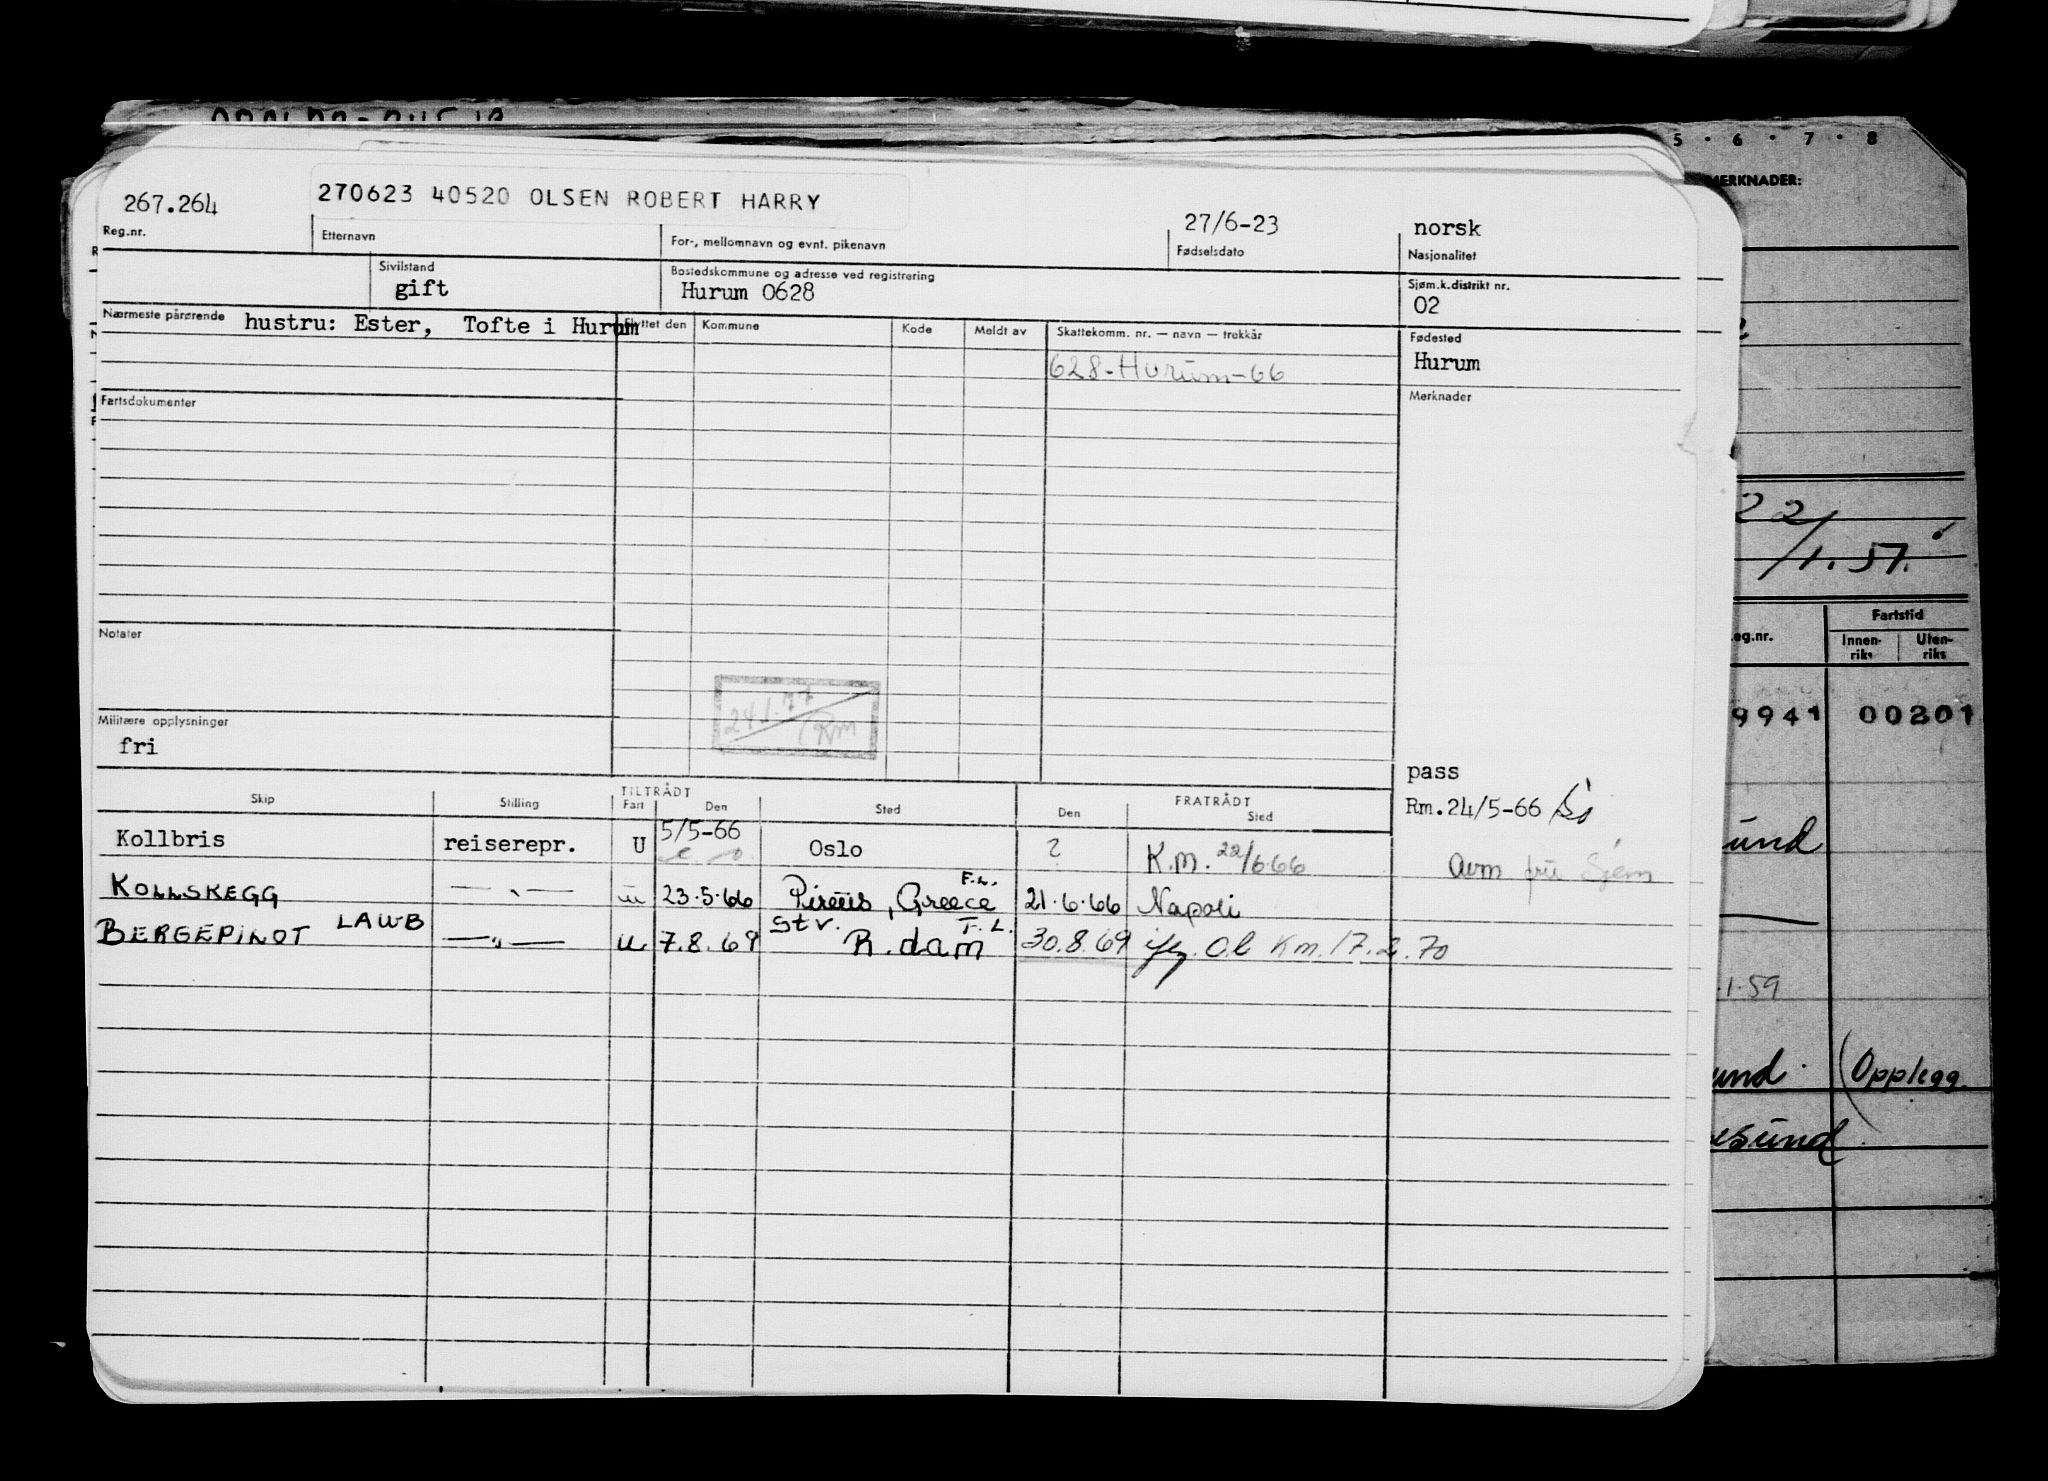 5 · 6 · 7 · 8
MERKNADER:
267.264
270623 40520 OLSEN ROBERT HARRY
27/6-23
norsk
Reg.nr.
Etternavn
For-, mellomnavn og evnt. pikenavn
Fødselsdato
Nasjonalitet
Sivilstand
Bostedskommune og adresse ved registrering
Sjøm.k.distrikt nr.
gift
Hurum 0628
02
Nærmeste pårørende hustru: Ester, Tofte i Hurum
Flyttet den Kommune Kode Meldt av Skattekomm. nr. — navn — trekkår
Fødested
628-Hurum-66
Hurum
Fartsdokumenter
Merknader
22/1.57.
Notater
eg.nr.
Fartstid
Innen-riks
Uten-riks
24.1.77
Rm
9941 00201
Militære opplysninger
fri
pass
Rm.24/5-66
Skip Stilling TILTRÅDT Fart Den Sted FRATRÅDT Den Sted
Kollbris reiserepr. U 5/5-66 Oslo ? K.M. 22/6-66
Avm fra
KOLLSKEGG —„— u 23.5.66 Pireus, Greece F.L. 21.6.66 Napoli
BERGEPILOT LAWB —„— u 7.8.69 stv. R.dam T.L. 30.8.69 iflg. Ol Km. 17.2.70
und
.1.59
und. (Opplegg.
sund.